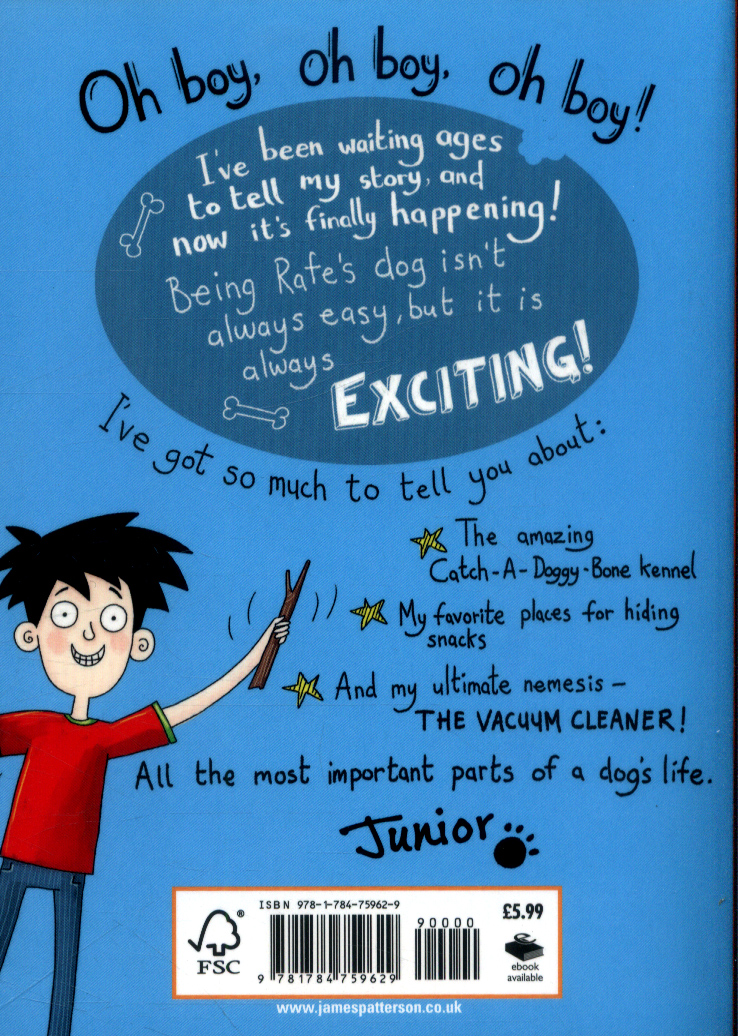 Oh boy, oh boy, oh boy!
I've been waiting ages
to tell my story, and
now it's finally happening!
Being Rafe's dog isn't
always easy, but it is
always EXCITING!
I've got so much to tell you about:
The amazing
Catch-A-Doggy-Bone kennel
My favorite places for hiding
snacks
And my ultimate nemesis –
THE VACUUM CLEANER!
All the most important parts of a dog's life.
Junior
ISBN 978-1-784-75962-9
90000
9 781784 759629
£5.99
ebook
available
® FSC
www.jamespatterson.co.uk